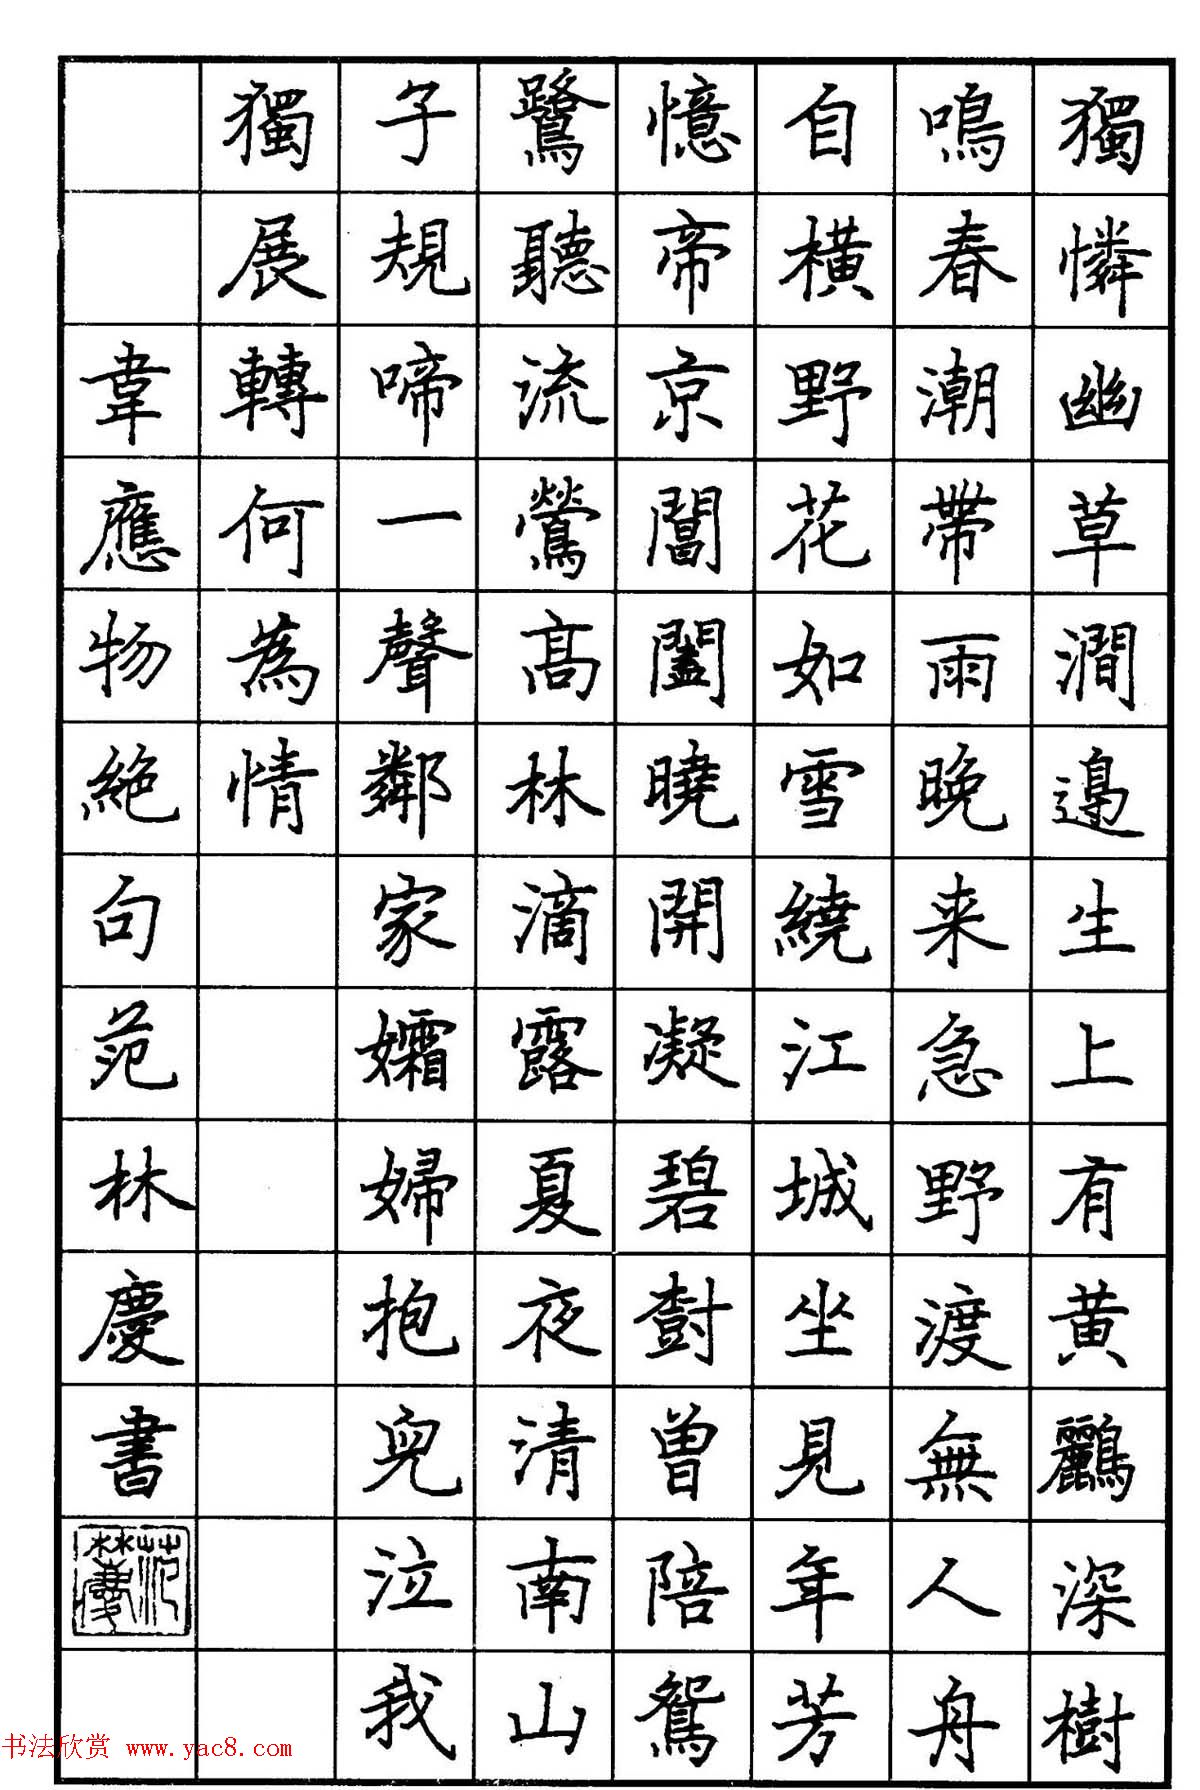 獨憐幽草澗邊生上有黄鸝深樹
鳴春潮帶雨晚来急野渡無人舟
自橫野花如雪繞江城坐見年芳
憶帝京閶闔曉開凝碧樹曾陪鴛
鷺聽流鶯髙林滴露夏夜清南山
子規啼一聲鄰家孀婦抱兒泣我
獨展轉何為情
韋應物絶句范林慶書
范林慶
书法欣赏 www.yac8.com